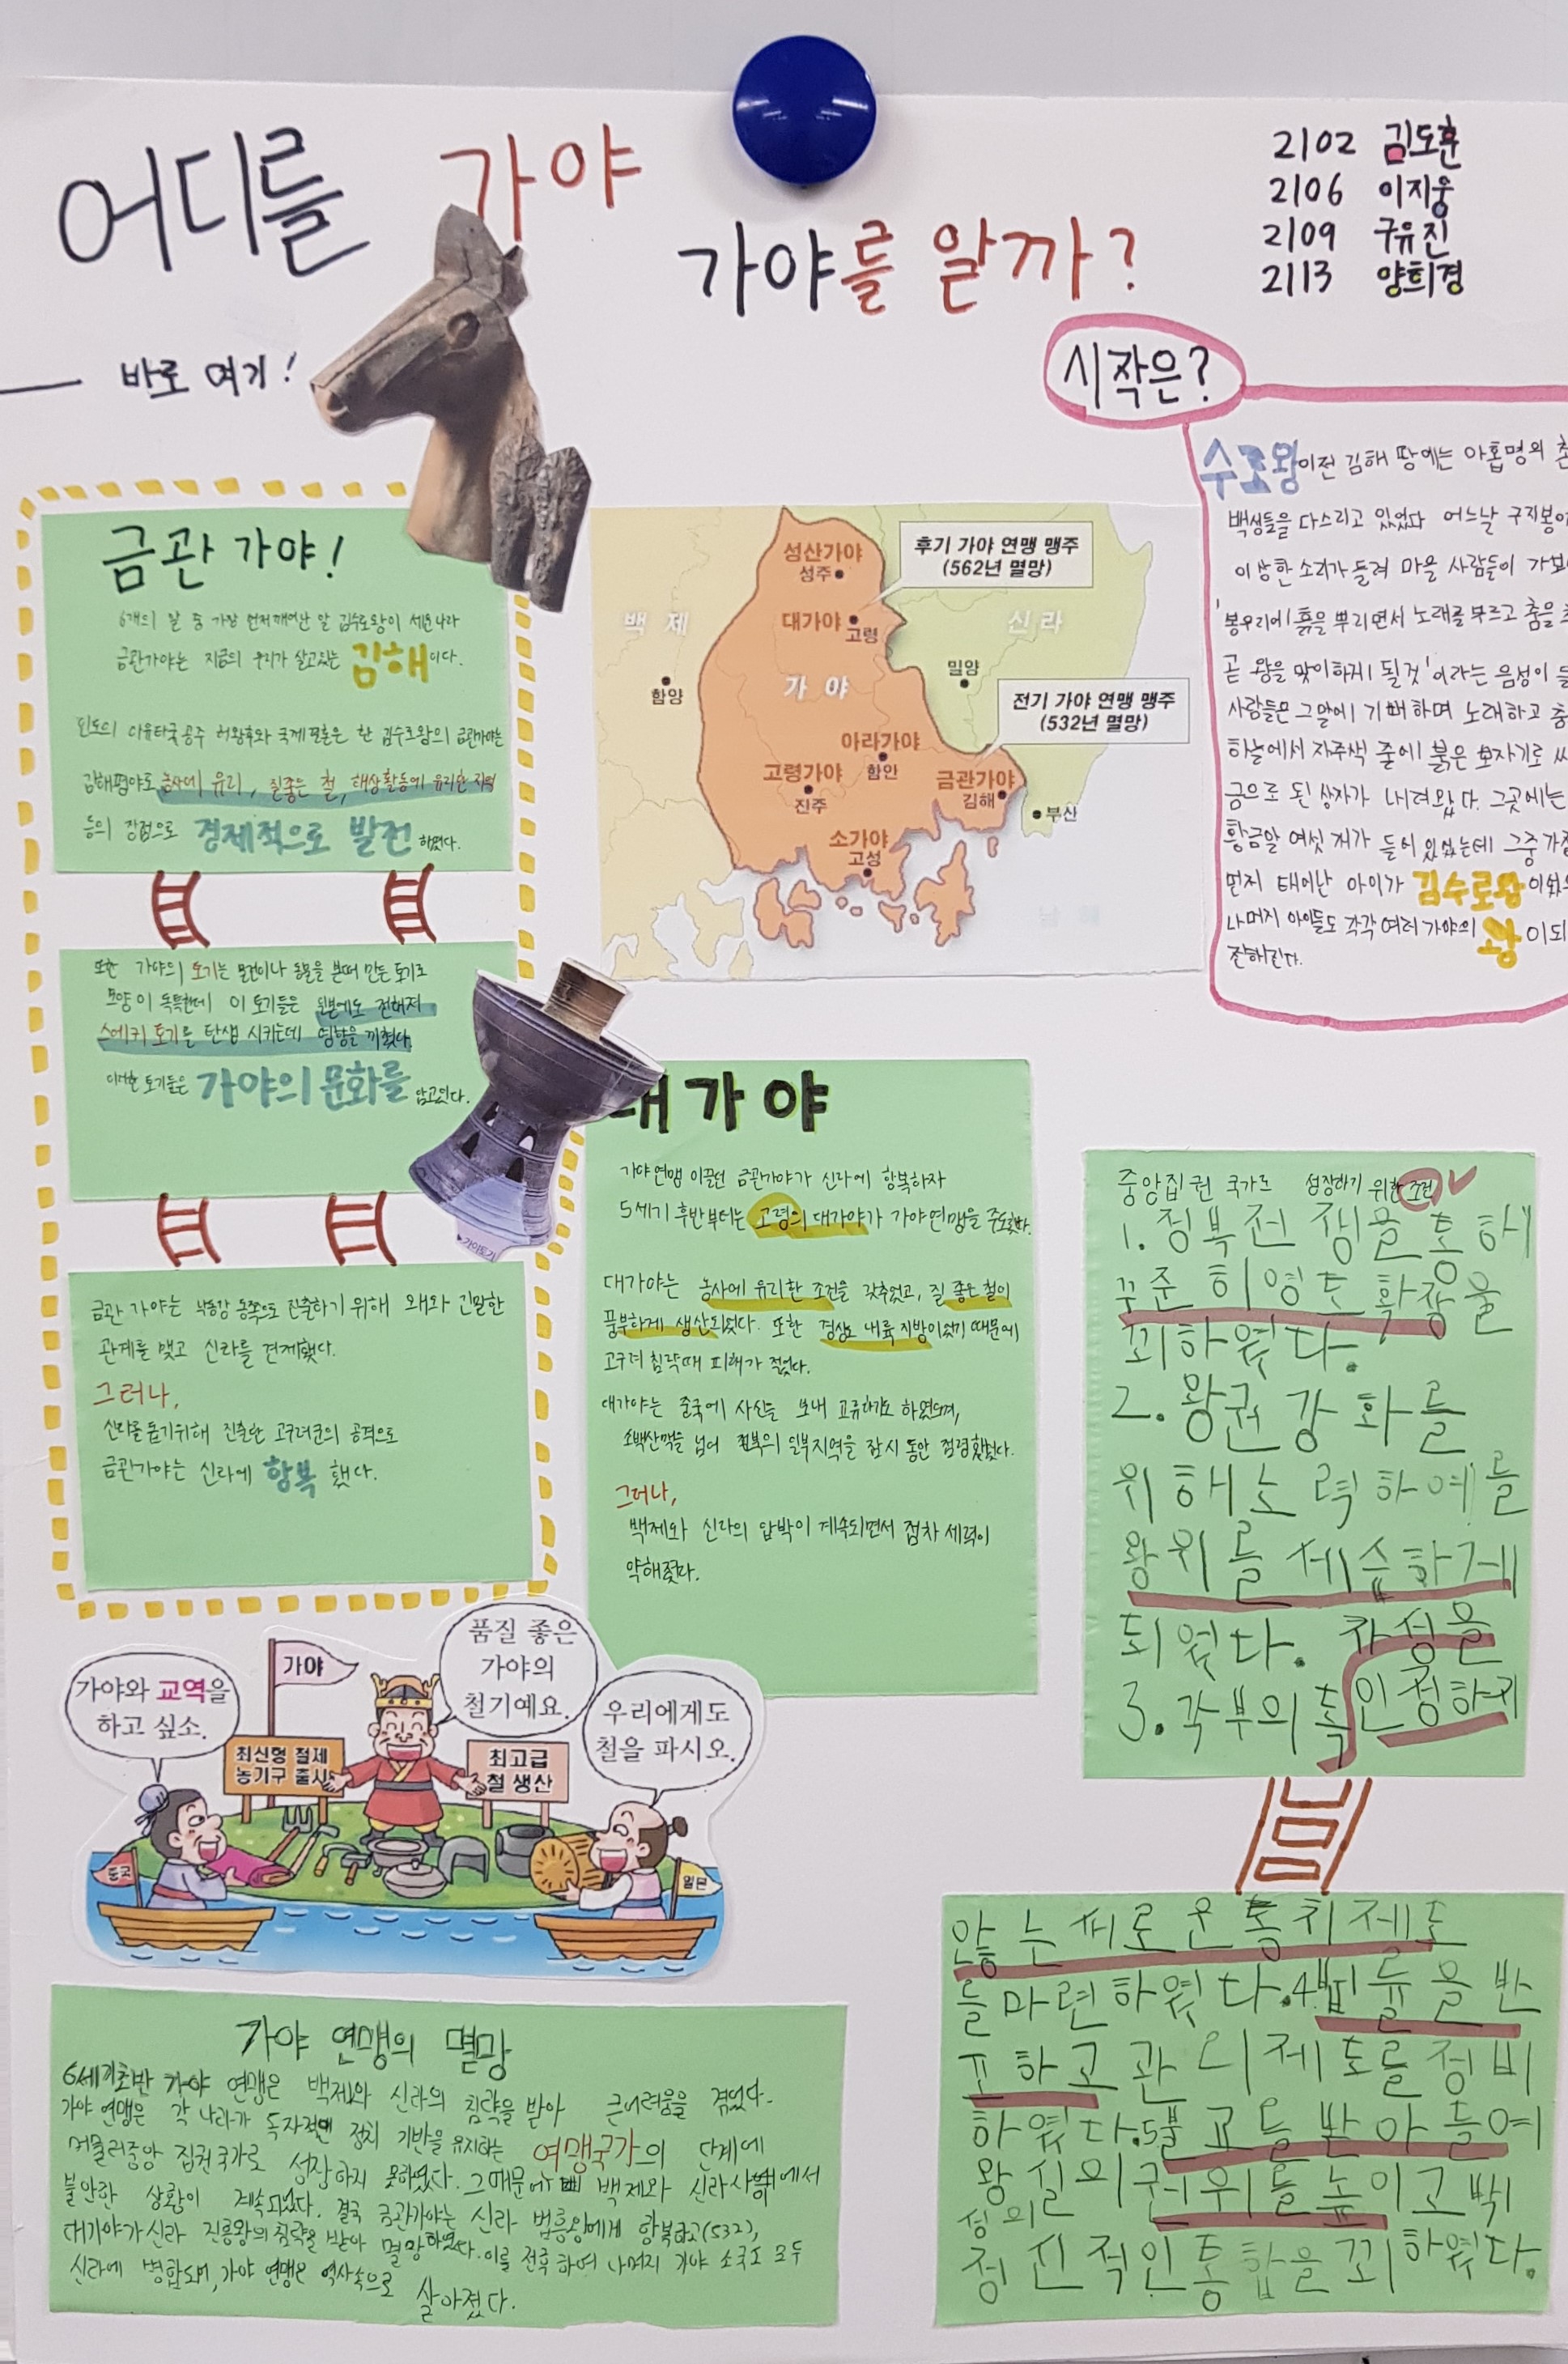 어디를 가야
가야를 알까?
2102 김도훈
2106 이지웅
2109 구유진
2113 양희경
바로 여기!
시작은?
수로왕이전 김해 땅에는 아홉명의 촌
백성들을 다스리고 있었다 어느날 구지봉이
이상한 소리가 들려 마을 사람들이 가보
'봉우리에 흙을 뿌리면서 노래를 부르고 춤을 추
곧 왕을 맞이하게 될것'이라는 음성이 들
사람들은 그말에 기뻐하며 노래하고 춤
하늘에서 자주색 줄에 붉은 보자기로 싸
금으로 된 상자가 내려왔다. 그곳에는
황금알 여섯 개가 들어 있었는데 그중 가장
먼저 태어난 아이가 김수로왕이었
나머지 아이들도 각각 여러 가야의 왕이되
전해진다.
금관 가야!
6개의 알 중 가장 먼저깨어난 알 김수로왕이 세운나라
금관가야는 지금의 우리가 살고있는 김해이다.
인도의 아유타국공주 허왕후와 국제결혼은 한 김수로왕의 금관가야는
김해평야로 농사에 유리, 질좋은 철, 해상활동에 유리한 지역
등의 장점으로 경제적으로 발전하였다.
또한 가야의 토기는 물건이나 동물을 본떠 만든 토기로
모양이 독특한데 이 토기들은 일본에도 전해져
스에키 토기를 탄생 시키는데 영향을 끼쳤다.
이러한 토기들은 가야의 문화를 담고있다.
가야토기
금관 가야는 낙동강 동쪽으로 진출하기 위해 왜와 긴밀한
관계를 맺고 신라를 견제했다.
그러나,
신라를 돕기위해 진출한 고구려군의 공격으로
금관가야는 신라에 항복 했다.
성산가야
성주
후기 가야 연맹 맹주
(562년 멸망)
백제
대가야
고령
신라
함양
가야
밀양
전기 가야 연맹 맹주
(532년 멸망)
아라가야
함안
고령가야
진주
금관가야
김해
부산
소가야
고성
남해
대가야
가야연맹 이끌던 금관가야가 신라에 항복하자
5세기 후반부터는 고령의 대가야가 가야연맹을 주도했다.
대가야는 농사에 유리한 조건을 갖추었고, 질 좋은 철이
풍부하게 생산되었다. 또한 경상도 내륙 지방이었기 때문에
고구려 침략때 피해가 적었다.
대가야는 중국에 사신을 보내 교류하기도 하였으며,
소백산맥을 넘어 전북의 일부지역을 잠시 동안 점령했었다.
그러나,
백제와 신라의 압박이 계속되면서 점차 세력이
약해졌다.
중앙집권 국가로 성장하기 위한 조건
1. 정복전쟁을 통해
꾸준히영토확장을
꾀하였다.
2. 왕권강화를
위해노력하여를
왕위를세습하게
되었다.
3. 각부의 독자성을
인정하지
않는새로운통치제도
를마련하였다.4법률을반
포하고관리제도를정비
하였다.5불교를받아들여
왕실의권위를높이고백
성의
정신적인통합을꾀하였다.
가야와 교역을
하고 싶소.
가야
품질 좋은
가야의
철기예요.
우리에게도
철을 파시오.
최신형 철제
농기구 출시
최고급
철 생산
중국
일본
가야 연맹의 멸망
6세기초반 가야 연맹은 백제와 신라의 침략을 받아 큰어려움을 겪었다.
가야 연맹은 각 나라가 독자적인 정치 기반을 유지하는 연맹국가의 단계에
머물러중앙 집권국가로 성장하지 못하였다. 그때문에 백제와 신라사이에서
불안한 상황이 계속되었다. 결국 금관가야는 신라 법흥왕에게 항복하고(532),
대가야가신라 진흥왕의 침략을 받아 멸망하였다.이를 전후 하여 나머지 가야 소국도 모두
신라에 병합되며, 가야 연맹은 역사속으로 살아졌다.